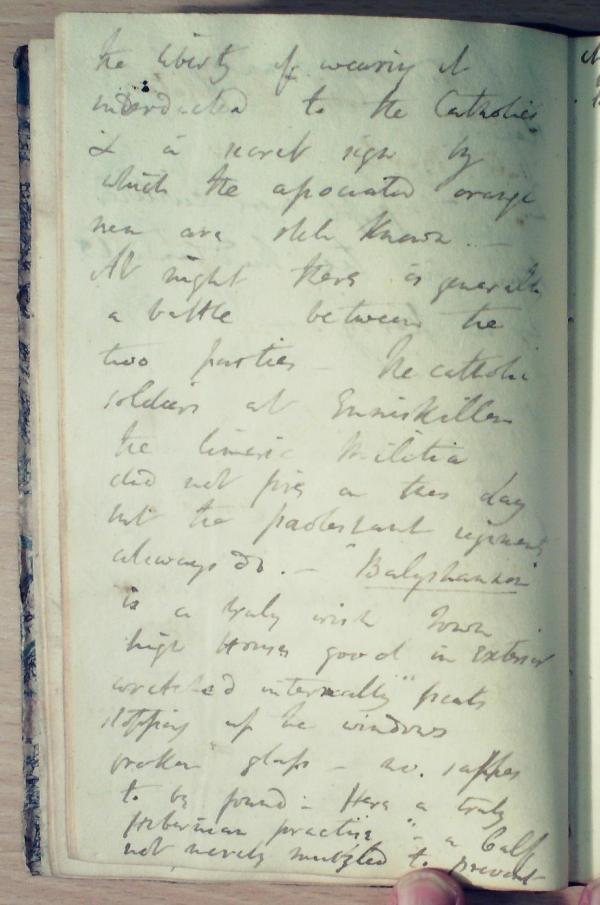 the liberty of wearing it
interdicted to the Catholics
& a secret sign by
which the associated orange
men are still known. —
At night there is generally
a battle between the
two parties — The catholic
soldiers at Enniskillen
the limeric Militia
did not fire on this day
but the protestant regiments
always do. — "Balyshannon
is a truly irish Town
high Houses good in exterior
wretched internally"
stopping up the windows
broken glass — no.
to be found — Here a truly
Hibernian practise — a Calf
not merely muzzled to prevent